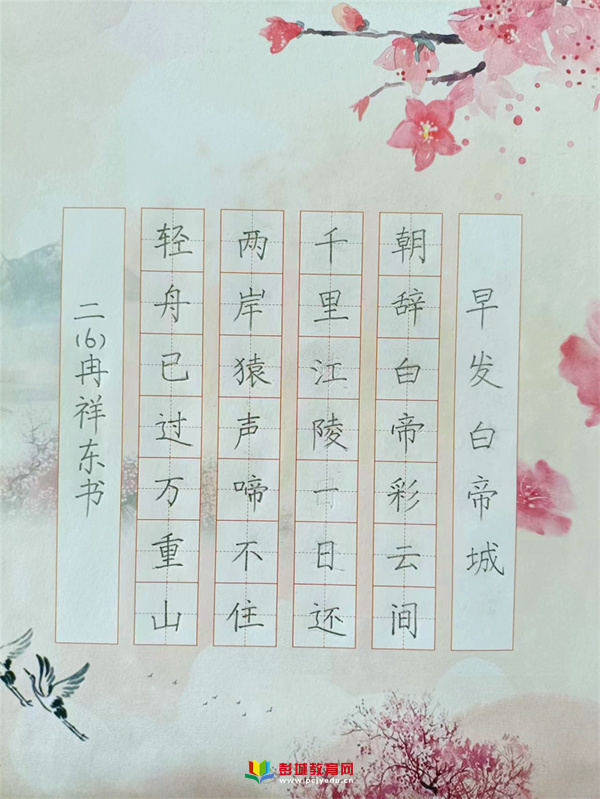 早发白帝城
朝辞白帝彩云间
千里江陵一日还
两岸猿声啼不住
轻舟已过万重山
二(6)冉祥东书
彭城教育网
www.pcjyedu.cn